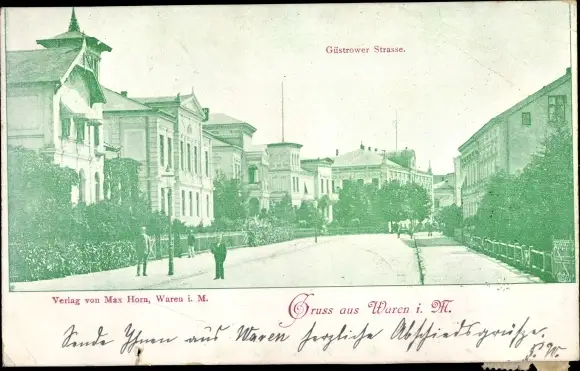 Güstrower Strasse.
Verlag von Max Horn, Waren i. M.
Gruss aus Waren i. M.
Sende Ihnen aus Waren herzliche Abschiedsgrüße.
F. W.